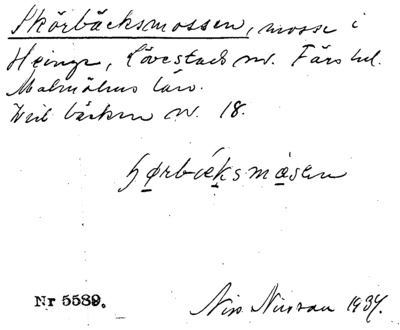 Skörbäcksmossen, mosse i
Heinge, Lövestads sn. Färs hd.
Malmöhus län.
Vid bäcken nr. 18.
hørbæksmosen
Nr 5589.
Nils Nilsson 1934.